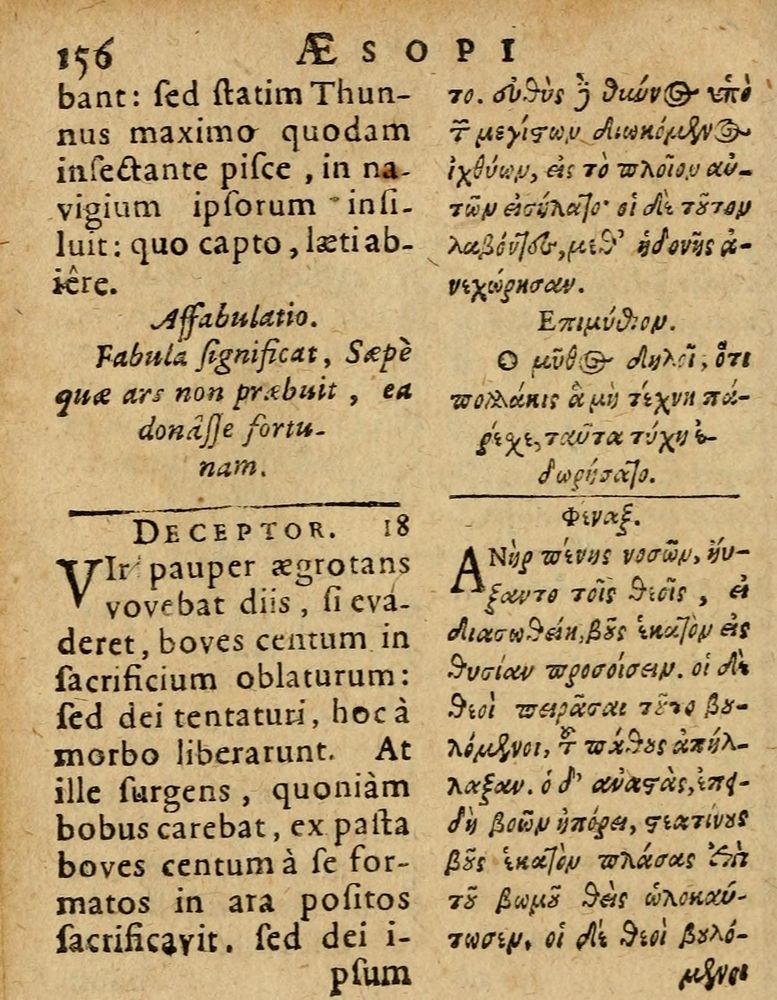 156 ÆSOPI
bant: ſed ſtatim Thun-
nus maximo quodam
inſectante piſce, in na-
vigium ipſorum inſi-
luit: quo capto, læti ab-
iêre.
Affabulatio.
Fabula ſignificat, Sæpè
quæ ars non præbuit, ea
donâſſe fortu-
nam.
DECEPTOR. 18
VIr pauper ægrotans
vovebat diis, ſi eva-
deret, boves centum in
ſacrificium oblaturum:
ſed dei tentaturi, hoc à
morbo liberarunt. At
ille ſurgens, quoniàm
bobus carebat, ex paſta
boves centum à ſe for-
matos in ara poſitos
ſacrificavit. ſed dei i-
pſum
το. εὐθὺς ἢ θύνν@ ὑπὸ
τ῀ μεγίϛων διωκόμεν@
ἰχθύων, εἰς τὸ πλοῖον αὐ-
τῶν εἰσήλατο· οἱ δὲ τοῦτον
λαβόντες, μεθ' ἡδονῆς ἀ-
νεχώρησαν.
Επιμύθιον.
Ο μῦθ@ δηλοῖ, ὅτι
πολλάκις ἃ μὴ τέχνη πά-
ρέχε, ταῦτα τύχη ἐ-
δωρήσατο.
Φέναξ.
ΑΝὴρ πένης νοσῶν, ηὔ-
ξαντο τοῖς θεοῖς, εἰ
διασωθείη, βοῦς ἑκατὸν εἰς
θυσίαν προσοίσειν. οἱ δὲ
θεοὶ πειρᾶσαι τοῦτο βου-
λόμενοι, τοῦ πάθους ἀπήλ-
λαξαν. ὁ δ' ἀναϛὰς, ἐπει-
δὴ βοῶν ἠπόρει, ϛεατίνους
βοῦς ἑκατὸν πλάσας ἐπὶ
τοῦ βωμοῦ θεὶς ὡλοκαύ-
τωσεν. οἱ δὲ θεοὶ βουλό-
μενοι